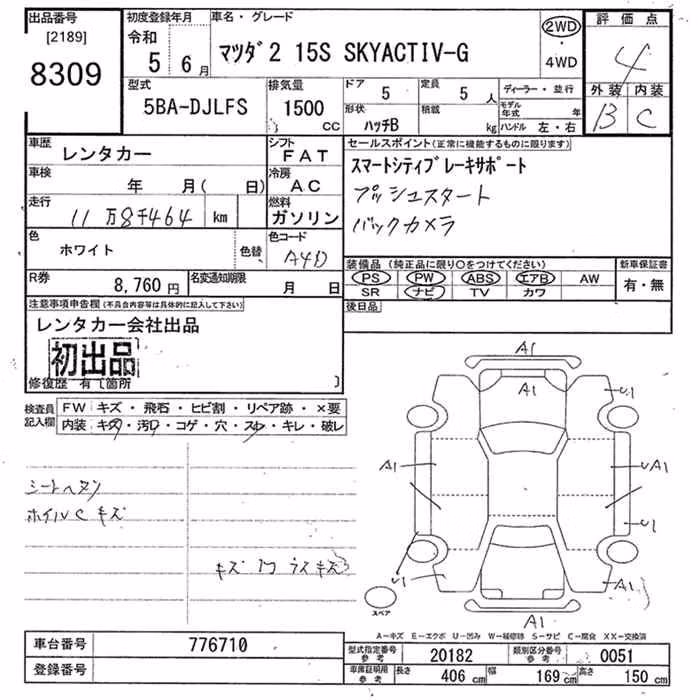 出品番号
[2189]
8309
初度登録年月
令和
5 6月
車名・グレード
マツダ2 15S SKYACTIV-G
2WD
・
4WD
評価点
4
外装 内装
B C
型式
5BA-DJLFS
排気量
1500
CC
ドア
5
定員
5人
形状
ハッチB
積載
kg
ディーラー・並行
モデル年式 年
ハンドル 左・右
車歴
レンタカー
シフト
FAT
車検
年 月( 日)
冷房
AC
走行
11万8千464 km
燃料
ガソリン
色
ホワイト
色替
色コード
A4D
R券
8,760円
名変通知期限
月 日
セールスポイント(正常に機能するものに限ります)
スマートシティブレーキサポート
プッシュスタート
バックカメラ
装備品(純正品に限り○をつけてください)
PS PW ABS エアB AW
SR ナビ TV カワ
新車保証書
有・無
後日品
注意事項申告欄(不具合内容等は具体的に記入して下さい)
レンタカー会社出品
初出品
修復歴 有〔箇所 〕
検査員
記入欄
FW キズ・飛石・ヒビ割・リペア跡・×要
内装 キズ・汚れ・コゲ・穴・スレ・キレ・破レ
シートヘタリ
ホイルCキズ
キズ 凹 ラスキズ
A1
A1
U1
A1
UA1
U1
U1
A1
A1
スペア
A-キズ E-エクボ U-凹み W-補修跡 S-サビ C-腐食 XX-交換済
車台番号
776710
登録番号
型式指定番号
参考
20182
類別区分番号
参考
0051
車庫証明用
参考
長さ
406 cm
幅
169 cm
高さ
150 cm